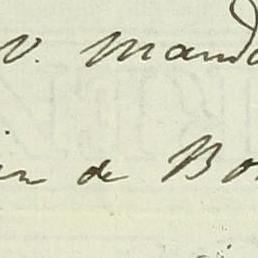 v. Mand
in de Bo